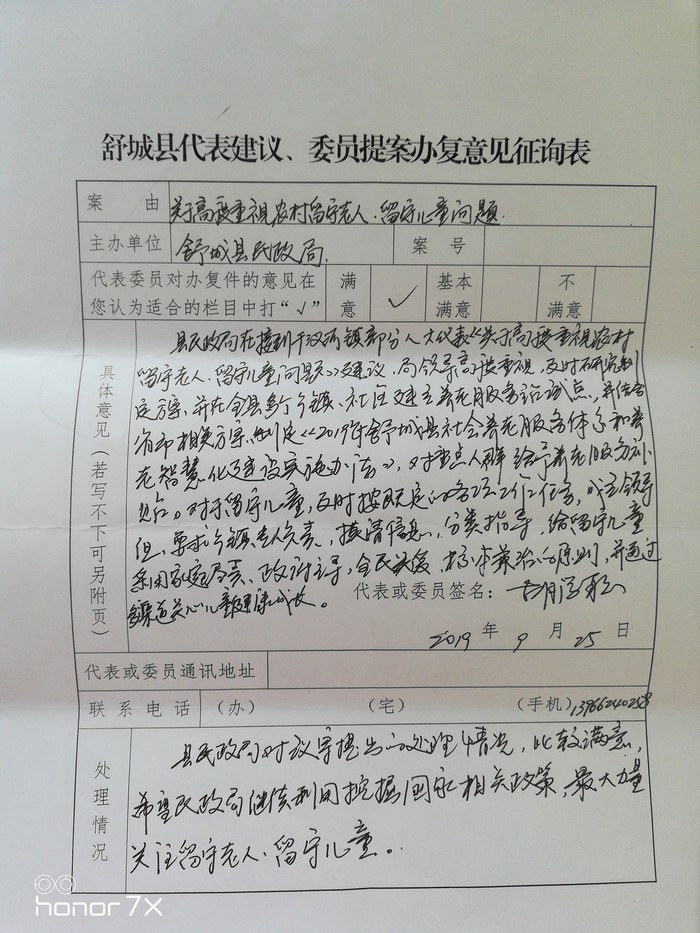 舒城县代表建议、委员提案办复意见征询表
案 由 关于高度重视农村留守老人、留守儿童问题
主办单位 舒城县民政局. 案 号
代表委员对办复件的意见在您认为适合的栏目中打“√” 满意 √ 基本满意 不满意
具体意见（若写不下可另附页）
县民政局在接到干汊河镇部分人大代表《关于高度重视农村
留守老人、留守儿童问题》建议，局领导高度重视，及时研究制
定方案，并在全县各乡镇、社区建立养老服务站试点，并结合
省市相关方案，制定《2019年舒城县社会养老服务体系和养
老智慧化建设实施办法》，对重点人群给予养老服务补
贴。对于留守儿童，及时按既定的各项工作任务，成立领导
组，要求乡镇专人负责，摸清信息，分类指导，给留守儿童
采用家庭尽责、政府主导，全民关爱，标本兼治的原则，并通过
多渠道关心儿童健康成长。
代表或委员签名：
2019 年 9 月 25 日
代表或委员通讯地址
联系电话 （办） （宅） （手机）
处理情况
县民政局对议案提出的处理情况，比较满意，
希望民政局继续利用挖掘国家相关政策，最大力量
关注留守老人、留守儿童。
honor 7X